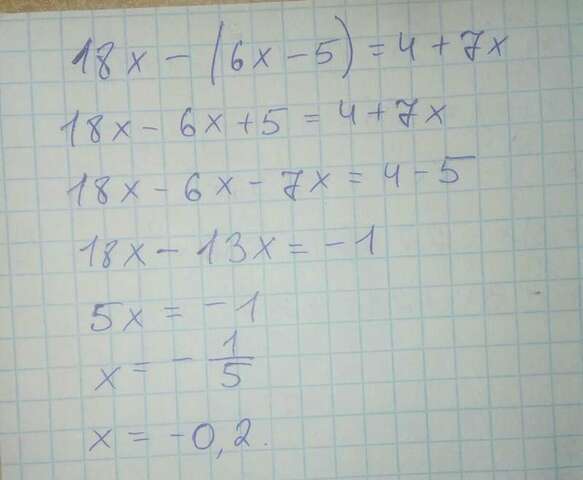 18x - (6x - 5) = 4 + 7x
18x - 6x + 5 = 4 + 7x
18x - 6x - 7x = 4 - 5
18x - 13x = -1
5x = -1
x = - 1/5
x = -0,2.